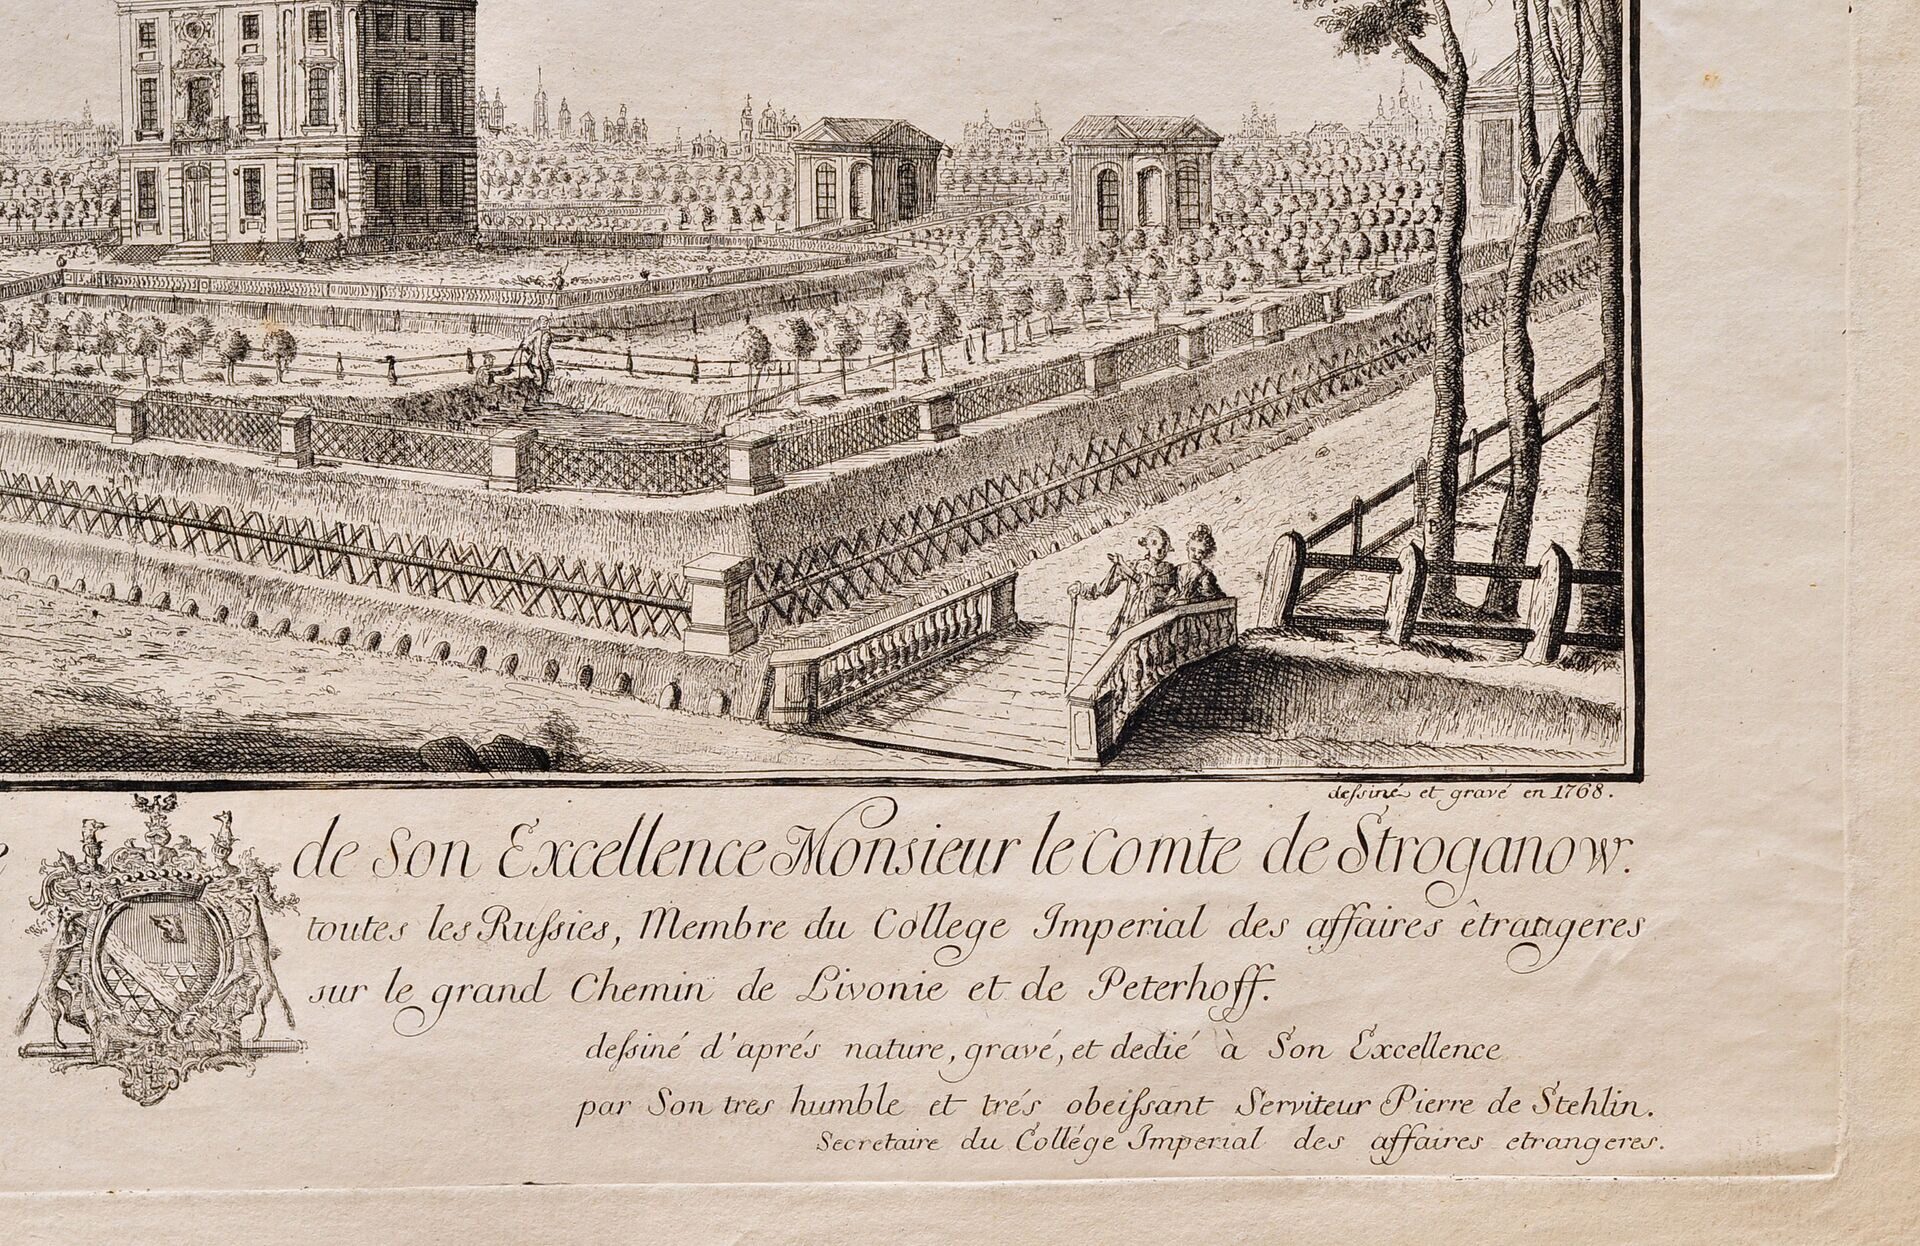 dessiné et gravé en 1768.
e de Son Excellence Monsieur le Comte de Stroganow.
toutes les Russies, Membre du College Imperial des affaires êtrangeres
sur le grand Chemin de Livonie et de Peterhoff.
dessiné d'aprés nature, gravé, et dedié à Son Excellence
par Son tres humble et trés obeissant Serviteur Pierre de Stehlin.
Secretaire du Collége Imperial des affaires etrangeres.